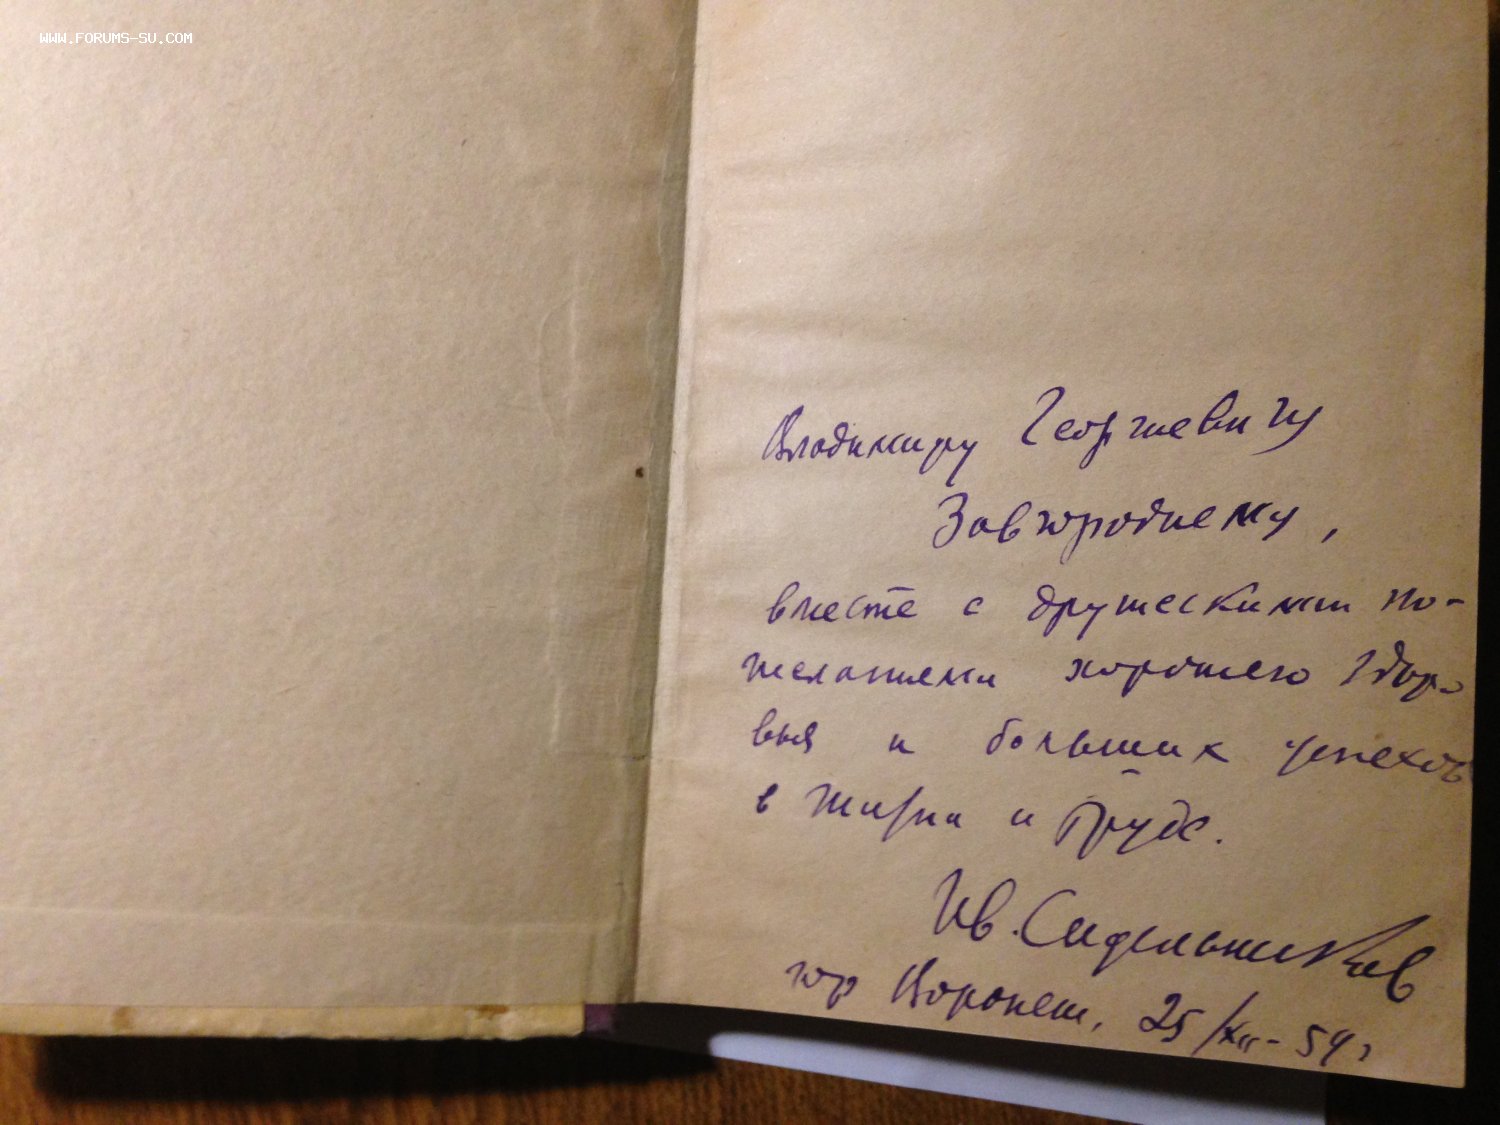 WWW.FORUMS-SU.COM
Владимиру Георгиевичу
Завгороднему,
вместе с дружескими по-
желаниями хорошего здоро-
вья и больших успехов
в жизни и труде.
Ив. Сидельников
гор Воронеж, 25/XII-54 г